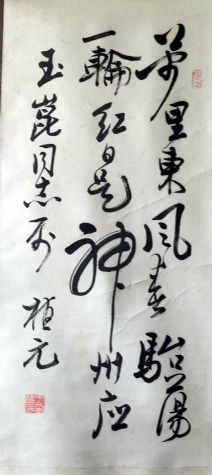 万里東风春駘蕩
一輪红日是神州应
玉崑同志 植元